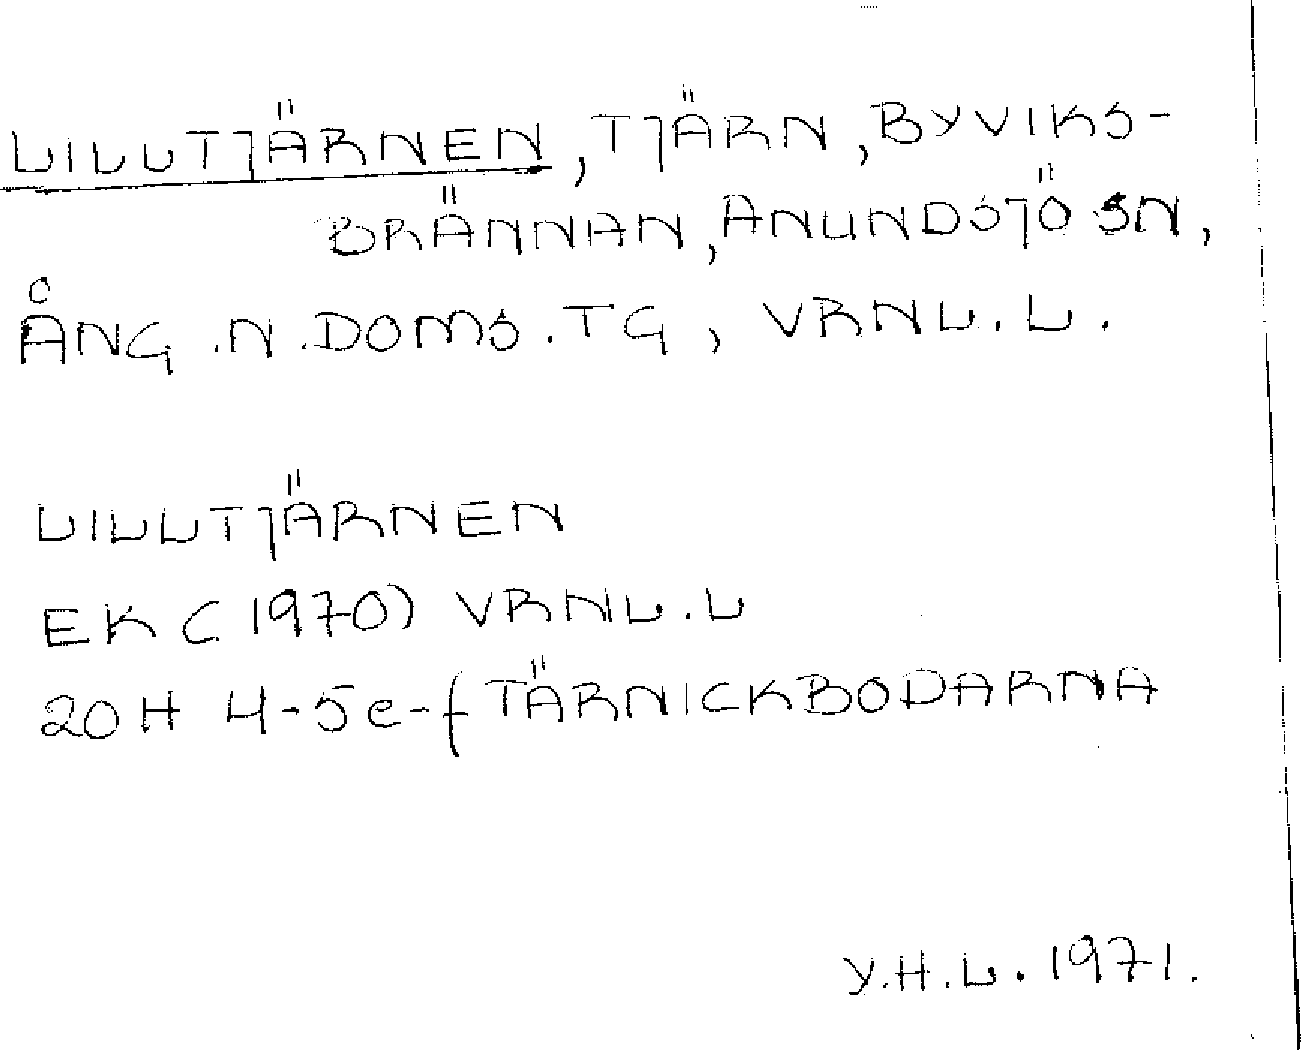 LILLTJÄRNEN, TJÄRN, BYVIKS-
BRÄNNAN, ANUNDSJÖ SN,
ÅNG.N.DOMS.TG, VRNL.L.
LILLTJÄRNEN
EK (1970) VRNL.L
20H 4-5e-f TÄRNICKBODARNA
Y.H.L. 1971.